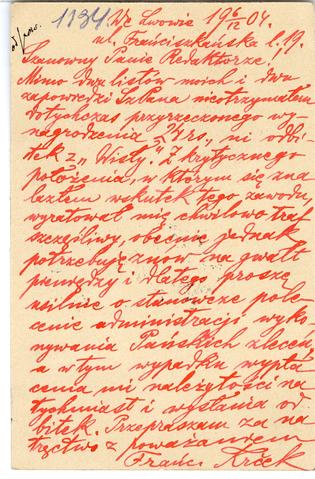 1134.
We Lwowie 19 6/12 04.
ul. Franciszkańska l. 19.
Szanowny Panie Redaktorze.
Mimo dwu listów moich i dwu
zapowiedzi Sz Pana nieotrzymałem
dotychczas przyrzeczonego wy-
nagrodzenia 24 rs, ani odbi-
tek z „Wisły". Z krytycznego
położenia, w którym się zna
lazłem wskutek tego zawodu,
wyratował mię chwilowo traf
szczęśliwy, obecnie jednak
potrzebuję znów na gwałt
pieniędzy i dlatego proszę
usilnie o stanowcze pole-
cenie administracji wyko-
nywania Pańskich zleceń,
a w tym wypadku wypła
cenia mi należytości na
tychmiast i wysłania od
bitek. Przepraszam za na
tręctwo z poważaniem
Franc. Krček